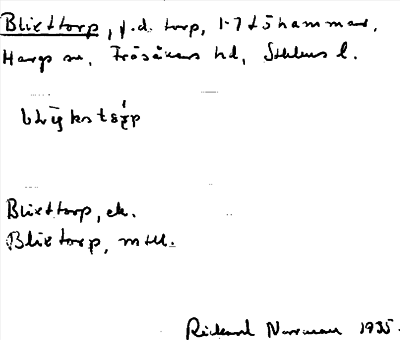 Blixttorp, f.d. torp, 1-7 Löhammar,
Hargs sn, Frösåkers hd, Sthlms l.
Blixttorp, ek.
Blixtorp, mtll.
Rickard Norrman 1935.